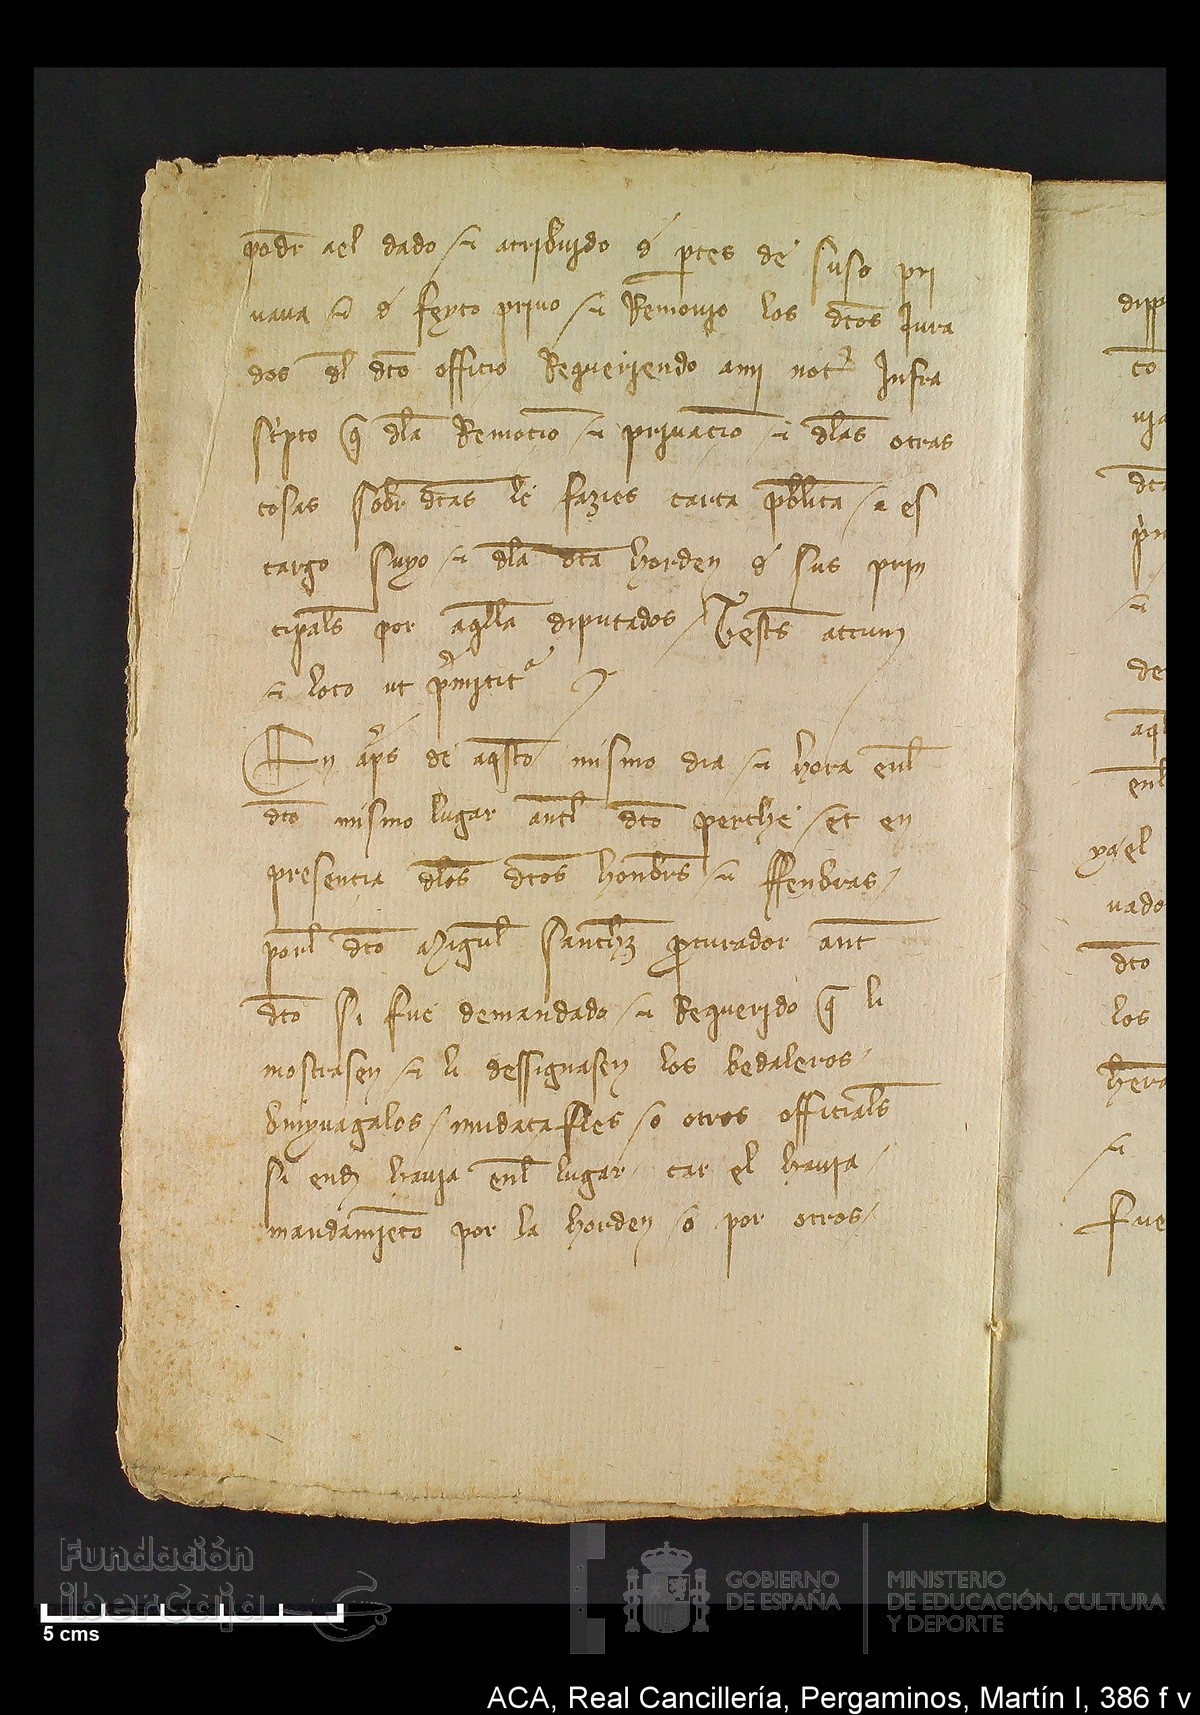 podr ael dado et atribuydo de ptes de suso pri
uaua et de feyto priuo et Remouio los dctos Jura
dos dl dcto officio Requeriendo ami not Jnfra
scripto q dla Remocio et priuacio et dlas otras
cosas sobrdctas le fazies carta publica a es
cargo suyo et dla dcta horden de sus prin
cipals por aqlla diputados Testes actum
et loco ut pmititr
En aps de aqsto mismo dia et hora enl
dcto mismo lugar antl dcto perche et en
presencia dlos dctos honbrs et ffenbras
porl dcto Miguel Sanchz procurador ant
dcto si fue demandado et Requerido q li
mostrasen et li dessignasen los bedaleros
buyuagalos mudacafles o otros officials
si end hauia enl lugar car el hauia
mandamieto por la horden o por otros
dipp
co
uia
dcta
et
de
aql
enl
ya el
uado
dcto
los
hera
et
Fue
Fundación
ibercaja
5 cms
GOBIERNO
DE ESPAÑA
MINISTERIO
DE EDUCACIÓN, CULTURA
Y DEPORTE
ACA, Real Cancillería, Pergaminos, Martín I, 386 f v